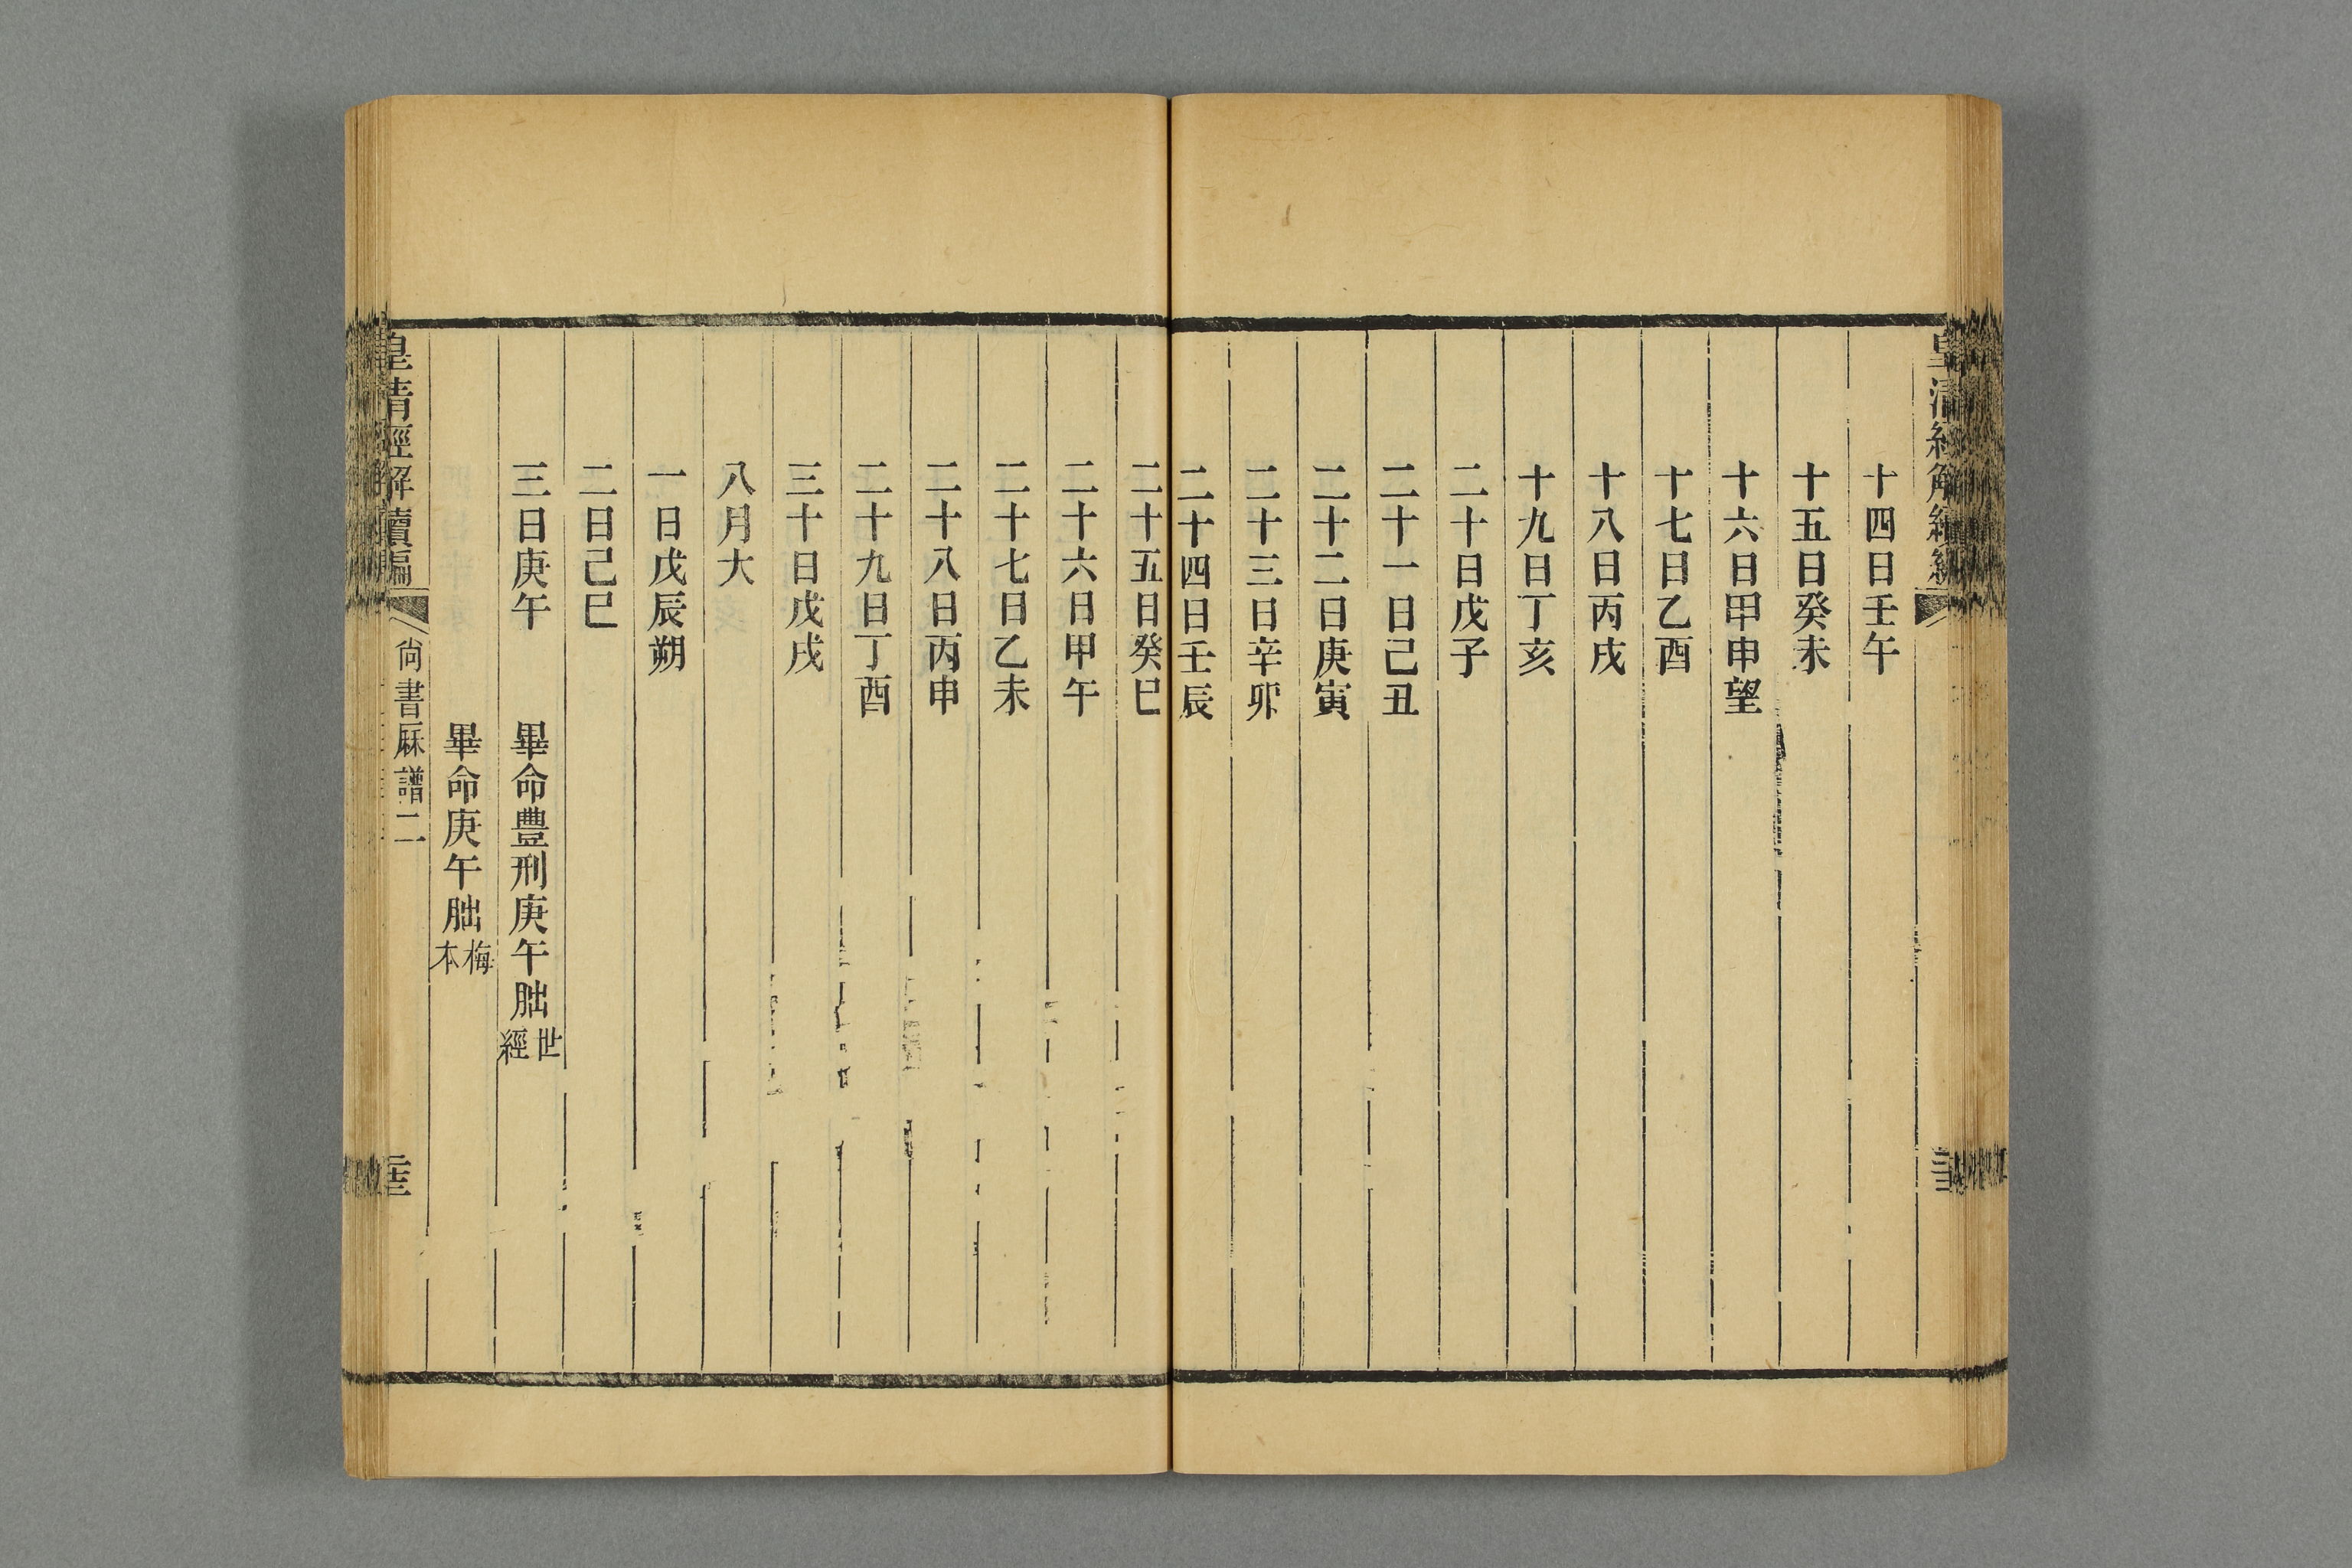 十四日壬午
十五日癸未
十六日甲申望
十七日乙酉
十八日丙戌
十九日丁亥
二十日戊子
二十一日己丑
二十二日庚寅
二十三日辛卯
二十四日壬辰
二十五日癸巳
二十六日甲午
二十七日乙未
二十八日丙申
二十九日丁酉
三十日戊戌
八月大
一日戊辰朔
二日己巳
三日庚午　畢命豐刑庚午朏世經
畢命庚午朏梅本
皇清經解續編　尚書厤譜二